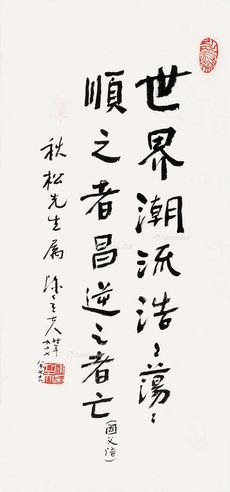 世界潮流浩〻蕩〻
順之者昌逆之者亡
(國父語)
秋松先生属 陳立夫